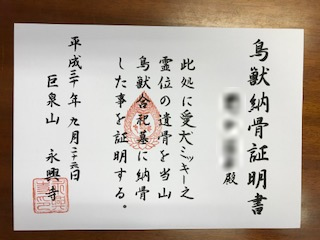 鳥獣納骨証明書
殿
此処に愛犬ミッキー之
霊位の遺骨を当山
鳥獣合祀墓に納骨
した事を証明する。
平成三十年九月二十六日
巨泉山 永興寺